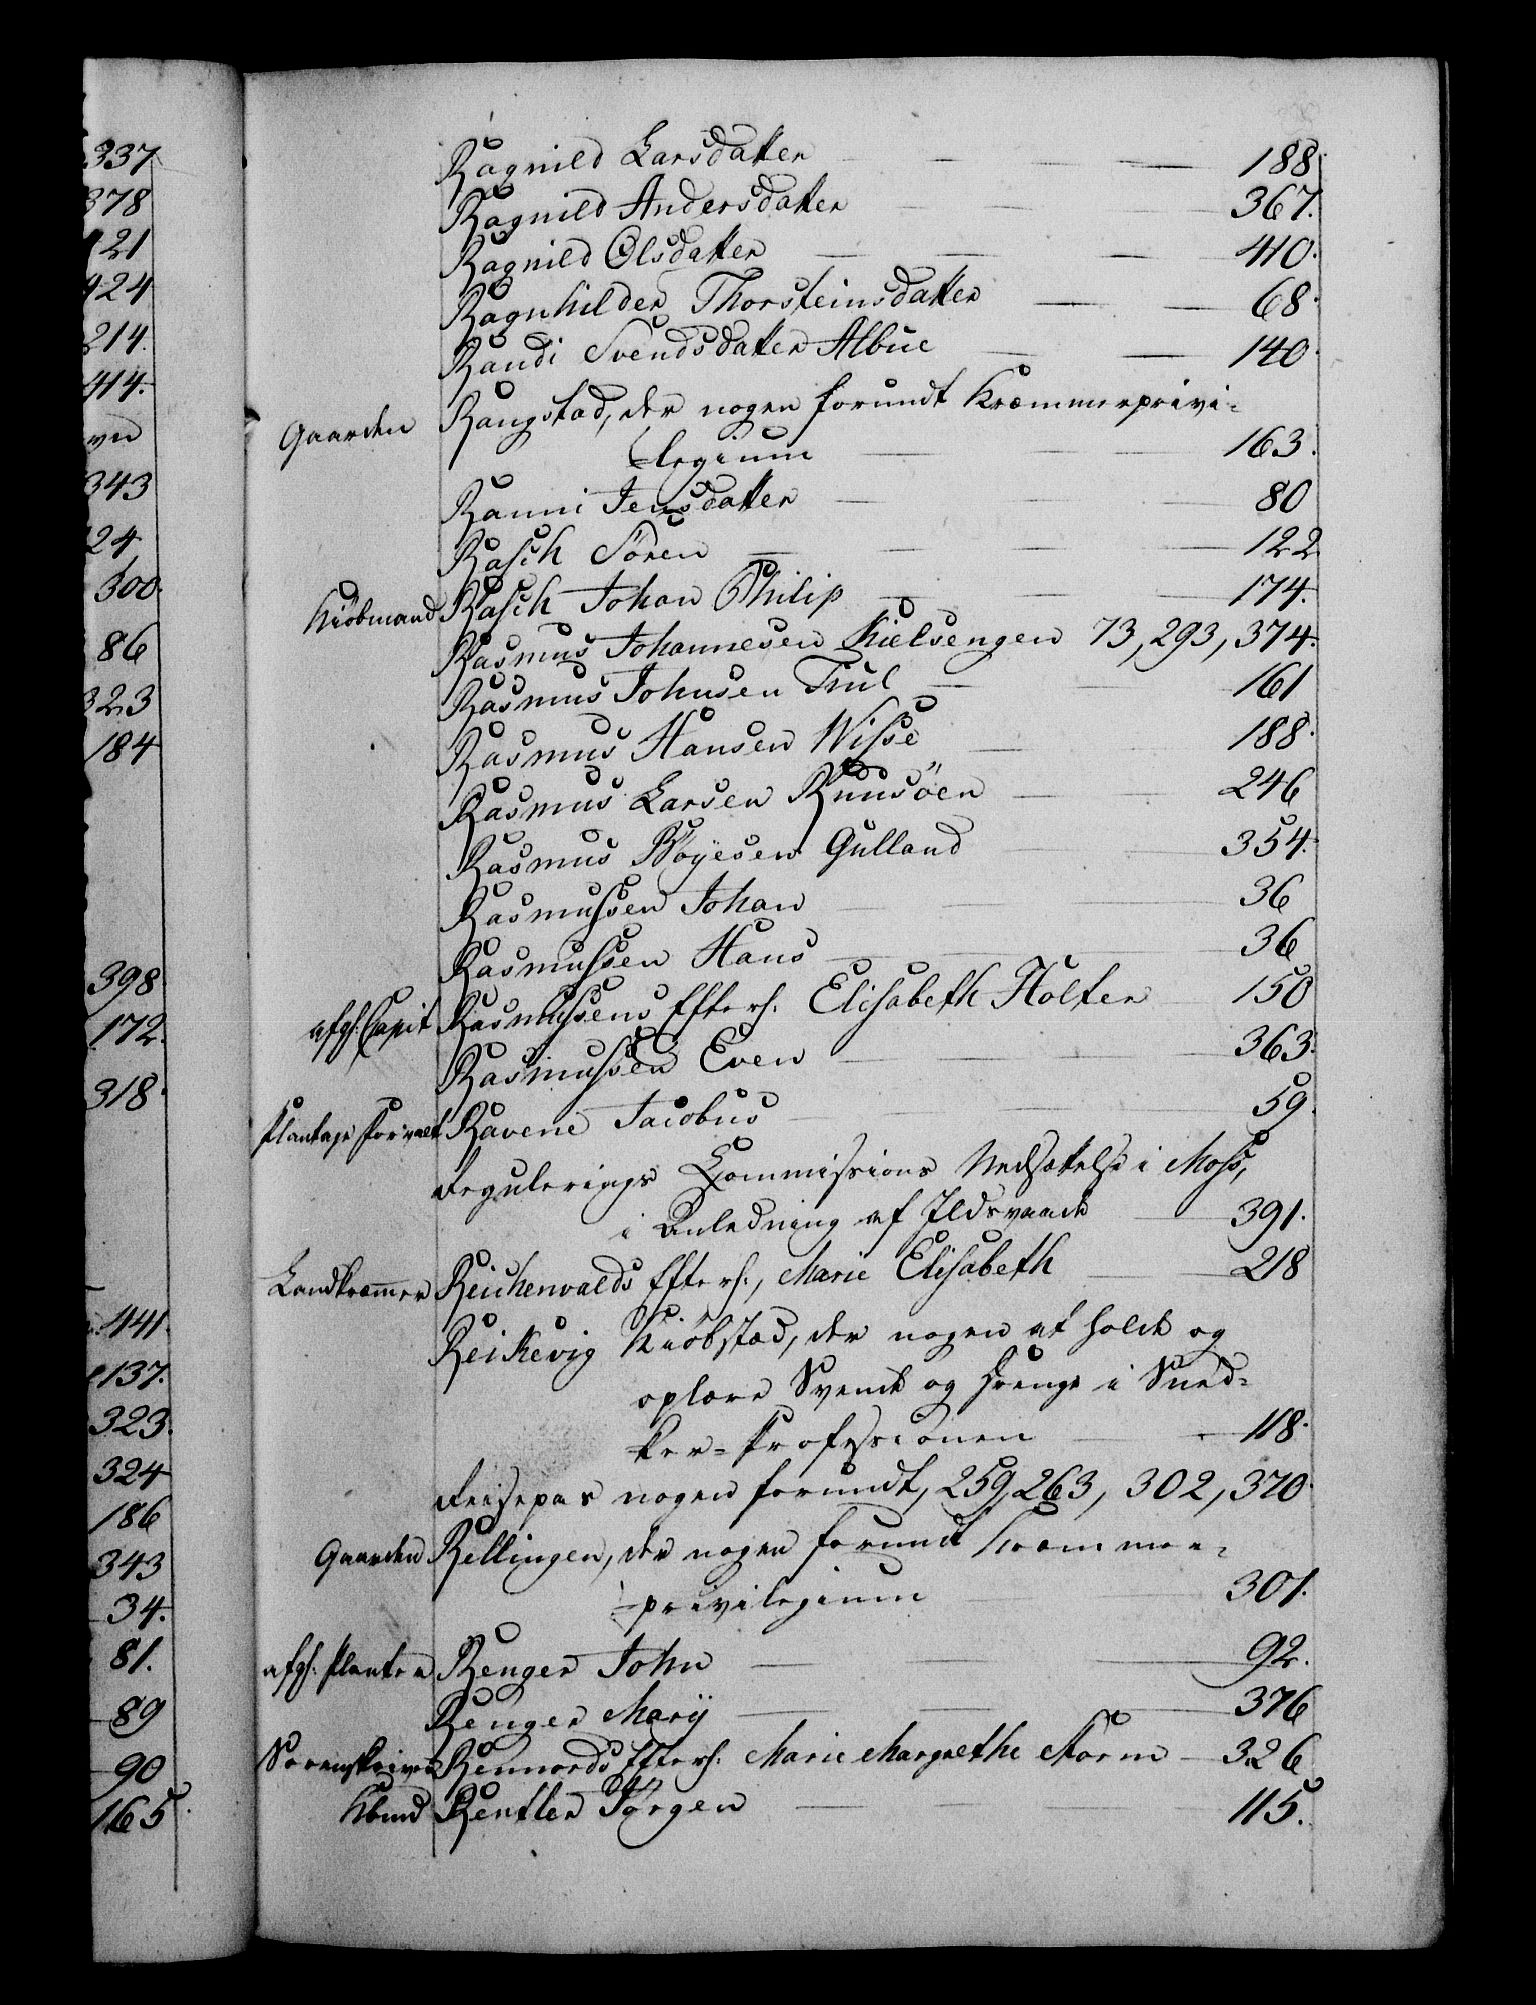 337
378
121
424
214.
414.
vn
343
24
300.
86
323
184
398
172.
318.
441.
137.
323.
324
186
343
34.
81.
89
90
165.
Ragnild Larsdatter 188.
Ragnild Andersdatter 367.
Ragnild Olsdatter 410.
Ragnhilder Thorsteinsdatter 68.
Randi Svendsdatter Albue 140.
Gaarden Rangstad, der nogen forundt Kræmmerprivi-
legium 163.
Ranni Jensdatter 80
Rasch Sören 122
Kiöbmand Rasch Johan Philip 174.
Rasmus Johannesen Kielsengen 73, 293, 374.
Rasmus Johnsen Tiul 161
Rasmus Hansen Wisse 188.
Rasmus Larsen Ruusöen 246
Rasmus Böyesen Gulland 354.
Rasmussen Johan 36
Rasmussen Hans 36
afg. Capit Rasmussens Efterl. Elisabeth Holter 150
Rasmussen Even 363.
Plantage Forvalt Ravene Jacobus 59.
Regulerings Commissions Nedsættelse i Moss,
i Anledning af Ildsvaade 391.
Landkræmmer Reichenwalds Efterl., Marie Elisabeth 218
Reikevig Kiöbstad, der nogen at holde og
oplære Svende og Drenge i Sned-
ker-Professionen 118.
Reisepas nogen forundt, 259, 263, 302, 370.
Gaarden Rellingen, der nogen forundt Kræmmer-
privilegium 301.
afg. Planter Renger John 92.
Renger Marÿ 376
Sorenskriver Rennords Efterl. Marie Margrethe Storm 326
Kbmd Rentler Jörgen 115.